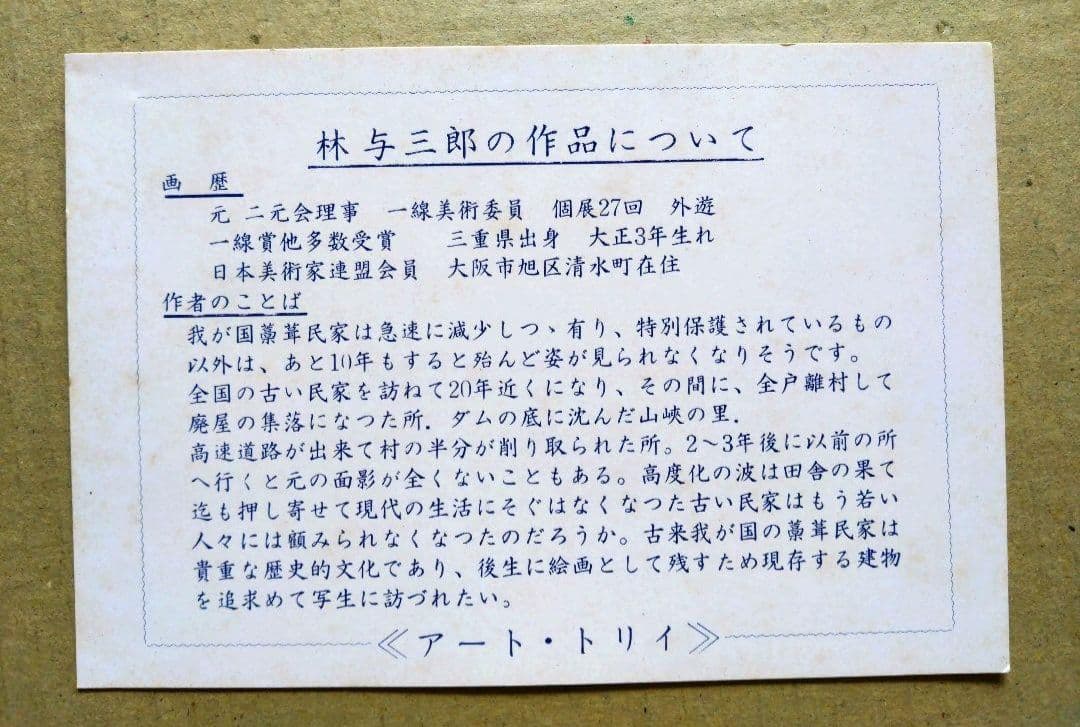 林与三郎の作品について
画 歴
元 二元会理事 一線美術委員 個展27回 外遊
一線賞他多数受賞 三重県出身 大正3年生れ
日本美術家連盟会員 大阪市旭区清水町在住
作者のことば
我が国藁葺民家は急速に減少しつゝ有り、特別保護されているもの
以外は、あと10年もすると殆んど姿が見られなくなりそうです。
全国の古い民家を訪ねて20年近くになり、その間に、全戸離村して
廃屋の集落になつた所．ダムの底に沈んだ山峡の里．
高速道路が出来て村の半分が削り取られた所。2～3年後に以前の所
へ行くと元の面影が全くないこともある。高度化の波は田舎の果て
迄も押し寄せて現代の生活にそぐはなくなつた古い民家はもう若い
人々には顧みられなくなつたのだろうか。古来我が国の藁葺民家は
貴重な歴史的文化であり、後生に絵画として残すため現存する建物
を追求めて写生に訪づれたい。
≪アート・トリイ≫